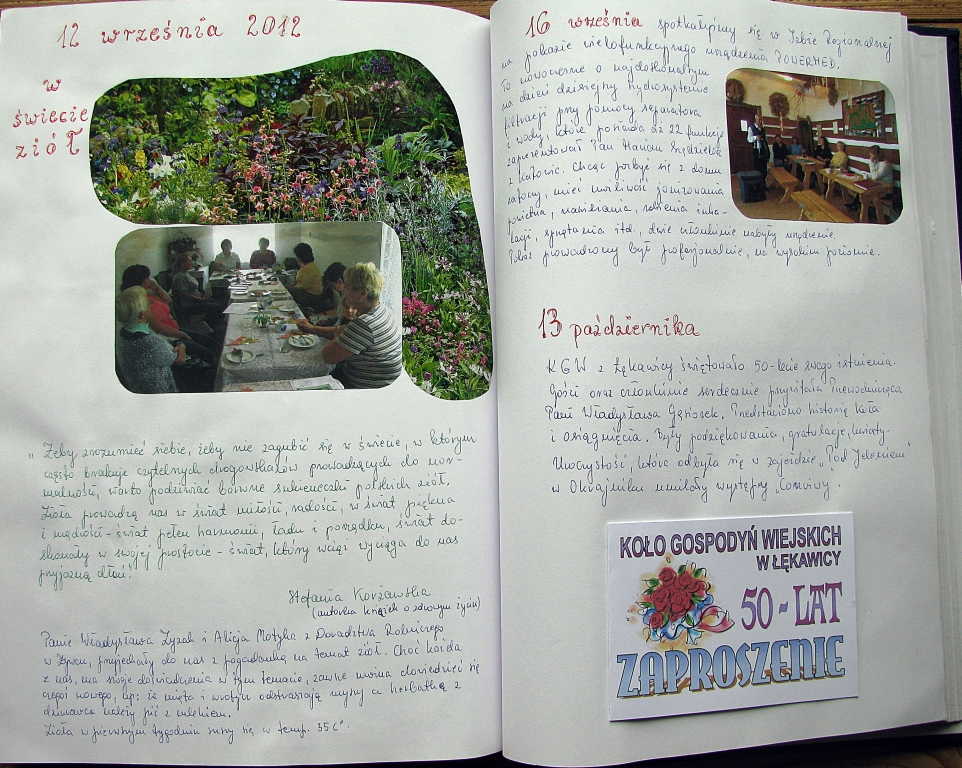 12 września 2012
w
świecie
ziół
„Żeby zrozumieć siebie, żeby nie zagubić się w świecie, w którym
często brakuje czytelnych drogowskazów prowadzących do nor-
malności, warto podziwiać barwne sukieneczki polskich ziół.
Zioła prowadzą nas w świat miłości, radości, w świat piękna
i mądrości - świat pełen harmonii, ładu i porządku, świat do-
skonały w swojej prostocie - świat, który wciąż wyciąga do nas
przyjazną dłoń."
Stefania Korżawska
(autorka książek o zdrowym życiu)
Panie Władysława Zyzak i Alicja Motyka z Doradztwa Rolniczego
w Żywcu, przyjechały do nas z pogadanką na temat ziół. Choć każda
z nas, ma swoje doświadczenia w tym temacie, zawsze można dowiedzieć się
czegoś nowego, np: że mięta i wrotycz odstraszają myszy a herbatkę z
dziurawca należy pić z mlekiem.
Zioła w pierwszym tygodniu suszy się w temp. 35 C°.
16 września spotkałyśmy się w Izbie Regionalnej
na pokazie wielofunkcyjnego urządzenia POWERMED.
To nowoczesne o najdoskonalszym
na dzień dzisiejszy hydrosystemie
filtracji przy pomocy separatora
i wody, które posiada aż 22 funkcje
zaprezentował Pan Marian
z Katowic. Chcąc pozbyć się z domu
roztoczy, mieć możliwość jonizowania
powietrza, nawilżania, robienia inha-
lacji, sprzątania itd., dwie członkinie nabyły urządzenie.
Pokaz prowadzony był profesjonalnie, na wysokim poziomie.
13 października
KGW z Łękawicy świętowało 50-lecie swego istnienia.
Gości oraz członkinie serdecznie przywitała Przewodnicząca
Pani Władysława Gąsiorek. Przedstawiono historię Koła
i osiągnięcia. Były podziękowania, gratulacje, kwiaty.
Uroczystość, która odbyła się w zajeździe „Pod Jeleniem"
w Okrajniku umilały występy
KOŁO GOSPODYŃ WIEJSKICH
W ŁĘKAWICY
50-LAT
ZAPROSZENIE